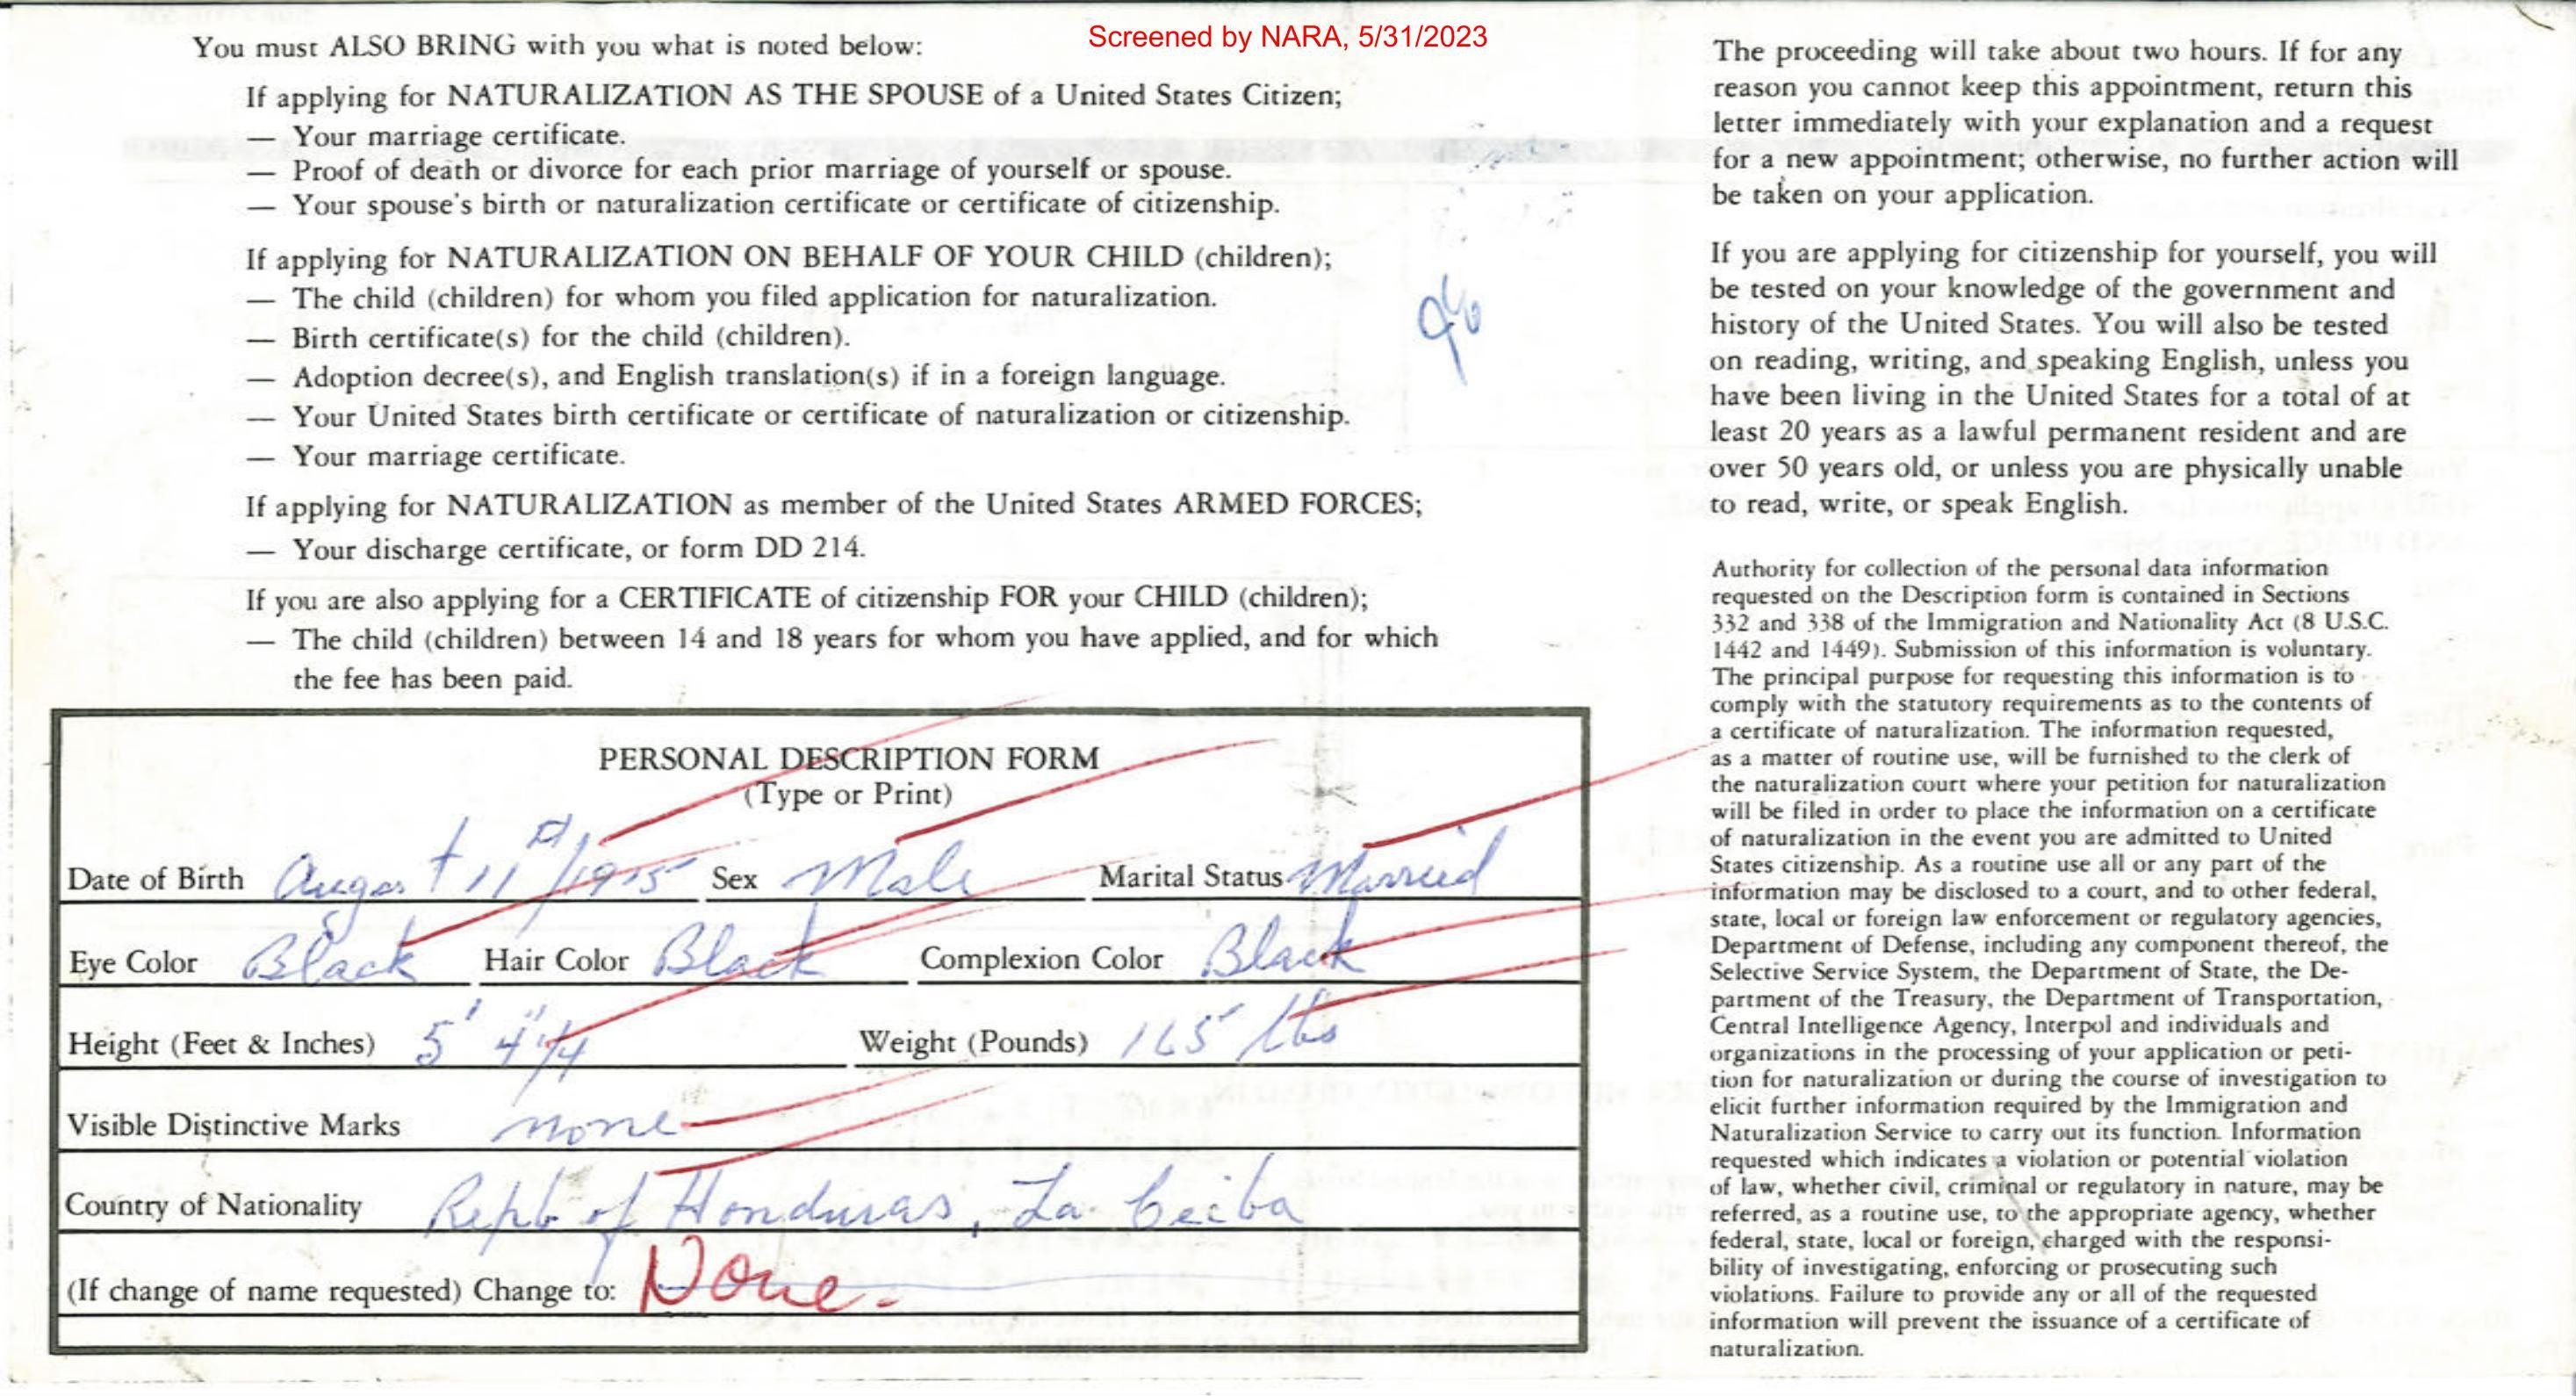 Screened by NARA, 5/31/2023
You must ALSO BRING with you what is noted below:
If applying for NATURALIZATION AS THE SPOUSE of a United States Citizen;
— Your marriage certificate.
— Proof of death or divorce for each prior marriage of yourself or spouse.
— Your spouse's birth or naturalization certificate or certificate of citizenship.
If applying for NATURALIZATION ON BEHALF OF YOUR CHILD (children);
— The child (children) for whom you filed application for naturalization.
— Birth certificate(s) for the child (children).
— Adoption decree(s), and English translation(s) if in a foreign language.
— Your United States birth certificate or certificate of naturalization or citizenship.
— Your marriage certificate.
If applying for NATURALIZATION as member of the United States ARMED FORCES;
— Your discharge certificate, or form DD 214.
If you are also applying for a CERTIFICATE of citizenship FOR your CHILD (children);
— The child (children) between 14 and 18 years for whom you have applied, and for which
the fee has been paid.
PERSONAL DESCRIPTION FORM
(Type or Print)
Date of Birth August 11 /1915 Sex Male Marital Status Married
Eye Color Black Hair Color Black Complexion Color Black
Height (Feet & Inches) 5' 4"1/4 Weight (Pounds) 165 lbs
Visible Distinctive Marks none
Country of Nationality Repb of Honduras, La Ceiba
(If change of name requested) Change to: None.
The proceeding will take about two hours. If for any
reason you cannot keep this appointment, return this
letter immediately with your explanation and a request
for a new appointment; otherwise, no further action will
be taken on your application.
If you are applying for citizenship for yourself, you will
be tested on your knowledge of the government and
history of the United States. You will also be tested
on reading, writing, and speaking English, unless you
have been living in the United States for a total of at
least 20 years as a lawful permanent resident and are
over 50 years old, or unless you are physically unable
to read, write, or speak English.
Authority for collection of the personal data information
requested on the Description form is contained in Sections
332 and 338 of the Immigration and Nationality Act (8 U.S.C.
1442 and 1449). Submission of this information is voluntary.
The principal purpose for requesting this information is to
comply with the statutory requirements as to the contents of
a certificate of naturalization. The information requested,
as a matter of routine use, will be furnished to the clerk of
the naturalization court where your petition for naturalization
will be filed in order to place the information on a certificate
of naturalization in the event you are admitted to United
States citizenship. As a routine use all or any part of the
information may be disclosed to a court, and to other federal,
state, local or foreign law enforcement or regulatory agencies,
Department of Defense, including any component thereof, the
Selective Service System, the Department of State, the De-
partment of the Treasury, the Department of Transportation,
Central Intelligence Agency, Interpol and individuals and
organizations in the processing of your application or peti-
tion for naturalization or during the course of investigation to
elicit further information required by the Immigration and
Naturalization Service to carry out its function. Information
requested which indicates a violation or potential violation
of law, whether civil, criminal or regulatory in nature, may be
referred, as a routine use, to the appropriate agency, whether
federal, state, local or foreign, charged with the responsi-
bility of investigating, enforcing or prosecuting such
violations. Failure to provide any or all of the requested
information will prevent the issuance of a certificate of
naturalization.